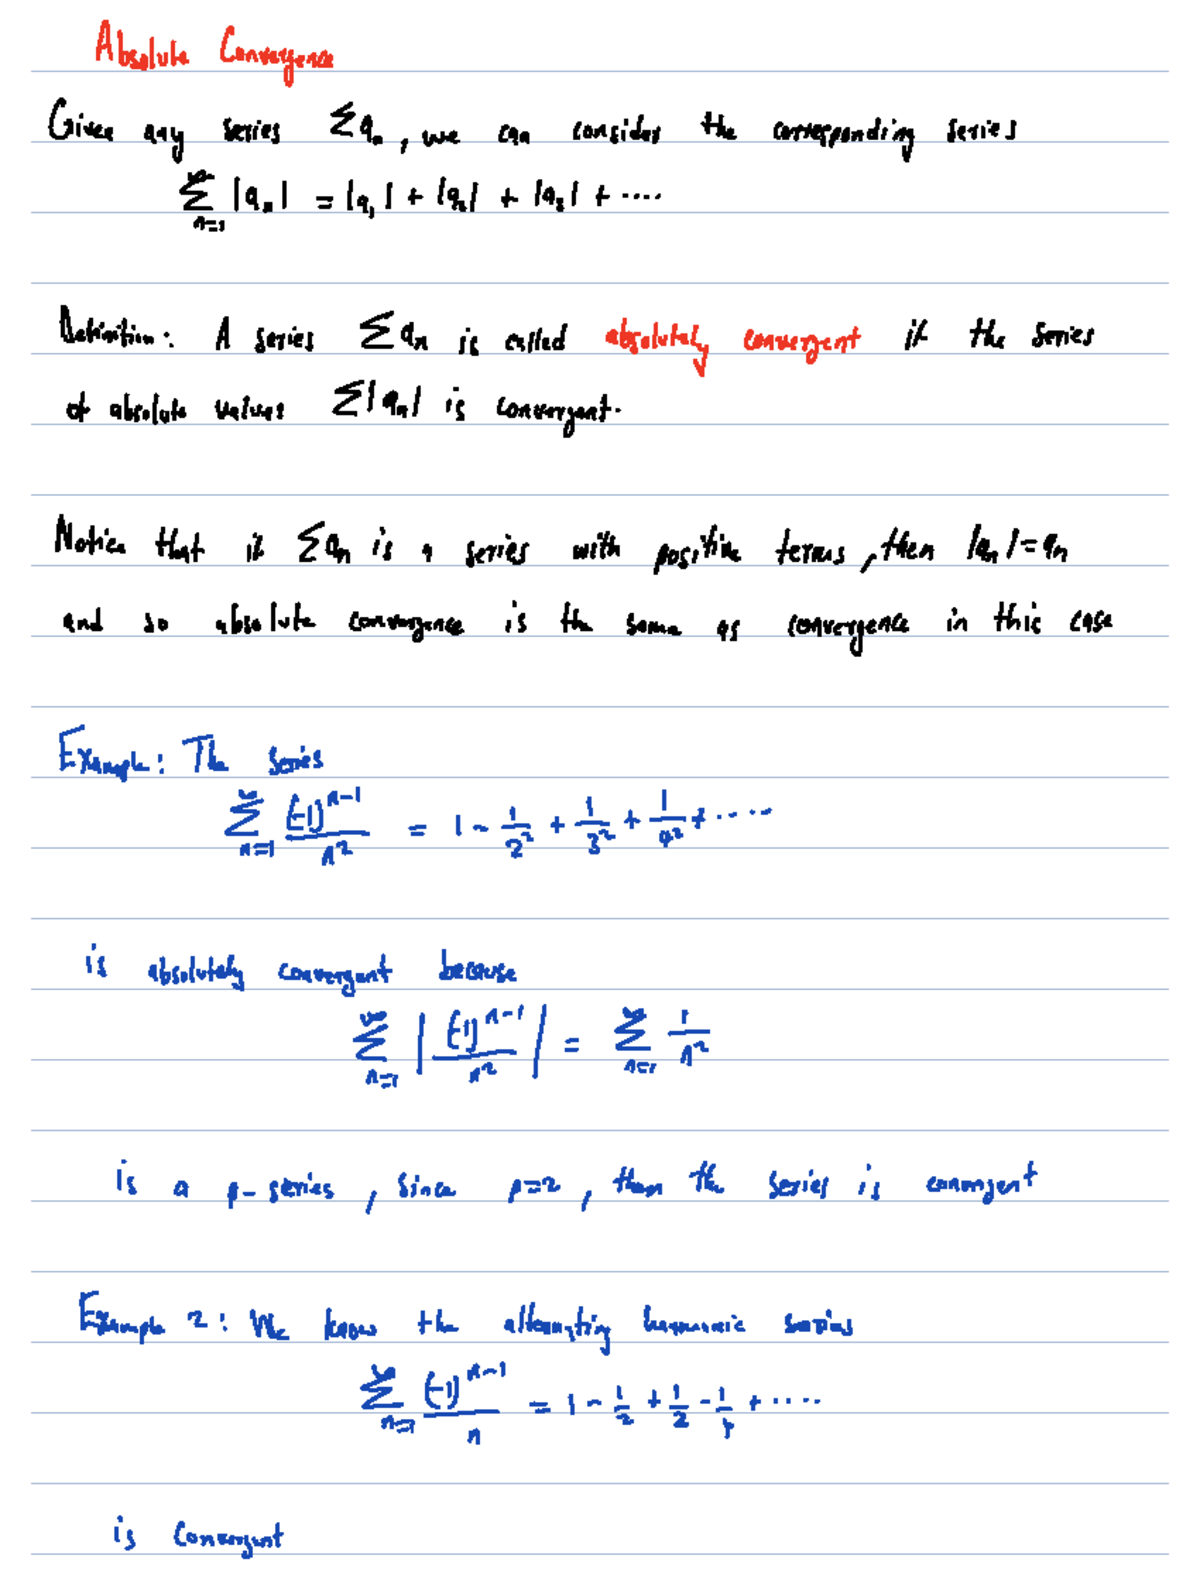 Absolute Convergence
Given any series Σaₙ, we can consider the corresponding series
∞Σn=1 |aₙ| = |a₁| + |a₂| + |a₃| + ....
Definition: A series Σaₙ is called absolutely convergent if the series
of absolute values Σ|aₙ| is convergent.
Notice that if Σaₙ is a series with positive terms, then |aₙ| = aₙ
and so absolute convergence is the same as convergence in this case
Example: The series
∞Σn=1 (-1)ⁿ⁻¹/n² = 1 - 1/2² + 1/3² + 1/4² + ....
is absolutely convergent because
∞Σn=1 |(-1)ⁿ⁻¹/n²| = ∞Σn=1 1/n²
is a p-series, since p=2, then the series is convergent
Example 2: We know the alternating harmonic series
∞Σn=1 (-1)ⁿ⁻¹/n = 1 - 1/2 + 1/2 - 1/4 + ....
is convergent